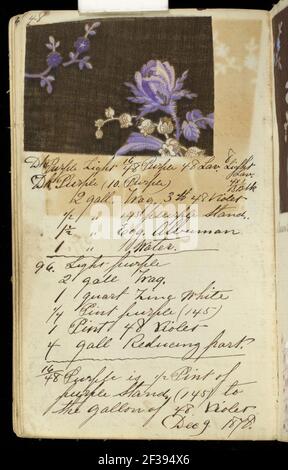 48
Dk Purple Light 48 Purple 48 Lav. Light
Dk Purple (10. Purple)
2 gall Trag. 3 48 Violet
1/2 " purple Stand.
1 1/2 " Egg Albuman
1 " Water.
96. Light purple
2 gall Trag.
1 quart Zinc White
1/4 Pint purple (145)
1 Pint 48 Violet
4 gall Reducing part?
48 Purple is 1/2 Pint of
purple Stand, (145) to
the gallon of 48. Violet
Dec 9
alamy
Image ID: 2E394X6
www.alamy.com